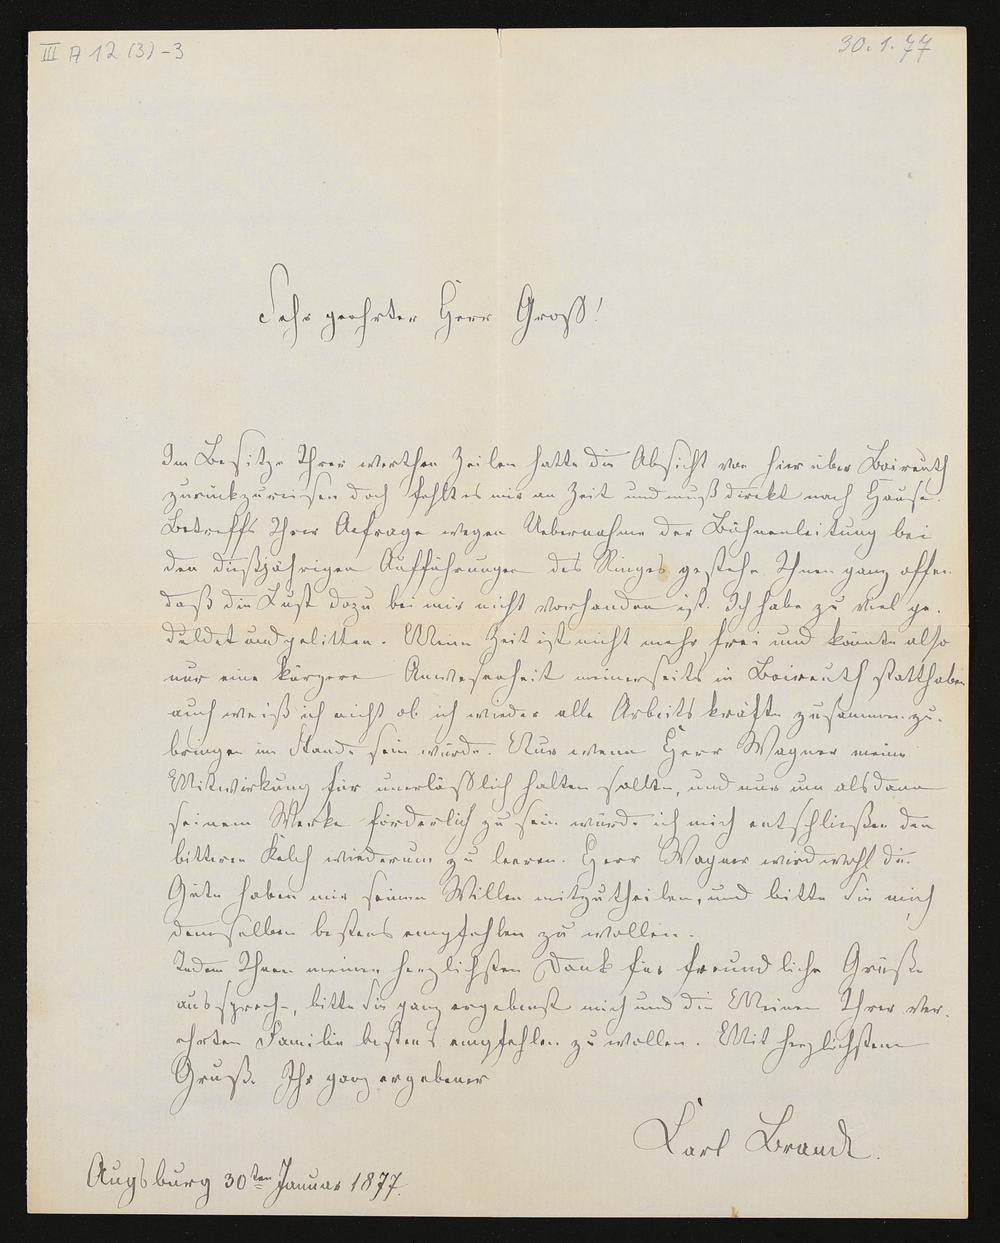 III A 12 (3) -3
30. 1. 77
Sehr geehrter Herr Groß!
Im Besitze Ihrer werthen Zeilen hatte die Absicht von hier über Baireuth
zurückzureisen doch fehlt es mir an Zeit und muß direkt nach Hause.
Betreffs Ihrer Anfrage wegen Uebernahme der Bühnenleitung bei
den dießjährigen Aufführungen des Ringes gestehe Ihnen ganz offen
daß die Lust dazu bei mir nicht vorhanden ist. Ich habe zu viel ge-
duldet und gelitten. Meine Zeit ist nicht mehr frei und könnte also
nur eine kürzere Anwesenheit meinerseits in Baireuth statthaben
auch weiß ich nicht ob ich wieder alle Arbeitskräfte zusammenzu-
bringen im Stande sein würde. Nur wenn Herr Wagner meine
Mitwirkung für unerläßlich halten sollte, und nur um alsdann
seinem Werke förderlich zu sein würde ich mich entschließen den
bitteren Kelch wiederum zu leeren. Herr Wagner wird wohl die
Güte haben mir seinen Willen mitzutheilen, und bitte Sie mich
demselben bestens empfehlen zu wollen.
Indem Ihnen meinen herzlichsten Dank für freundliche Grüße
ausspreche, bitte Sie ganz ergebenst mich und die Meinen Ihrer ver-
ehrten Familie bestens empfehlen zu wollen. Mit herzlichstem
Gruße Ihr ganz ergebener
Carl Brandt.
Augsburg 30ten Januar 1877.